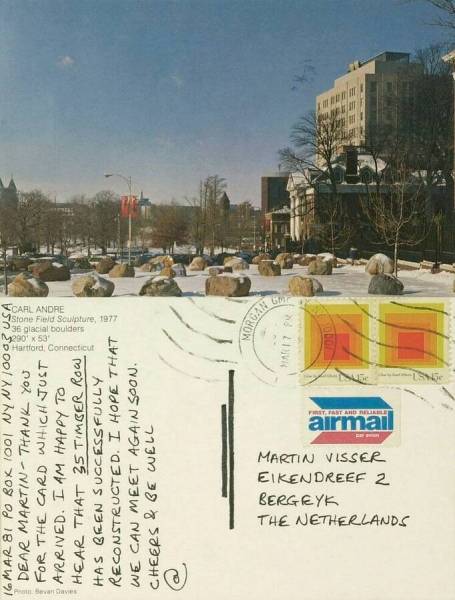 CARL ANDRE
Stone Field Sculpture, 1977
36 glacial boulders
290' x 53'
Hartford, Connecticut
16 MAR 81 PO BOX 1001 NY NY 10003 USA
DEAR MARTIN - THANK YOU
FOR THE CARD WHICH JUST
ARRIVED. I AM HAPPY TO
HEAR THAT 35 TIMBER ROW
HAS BEEN SUCCESSFULLY
RECONSTRUCTED. I HOPE THAT
WE CAN MEET AGAIN SOON.
CHEERS & BE WELL
@
Photo: Bevan Davies
MORGAN
MAR 17 PM
USA 15c
USA 15c
FIRST, FAST AND RELIABLE
airmail
par avion
MARTIN VISSER
EIKENDREEF 2
BERGEYK
THE NETHERLANDS